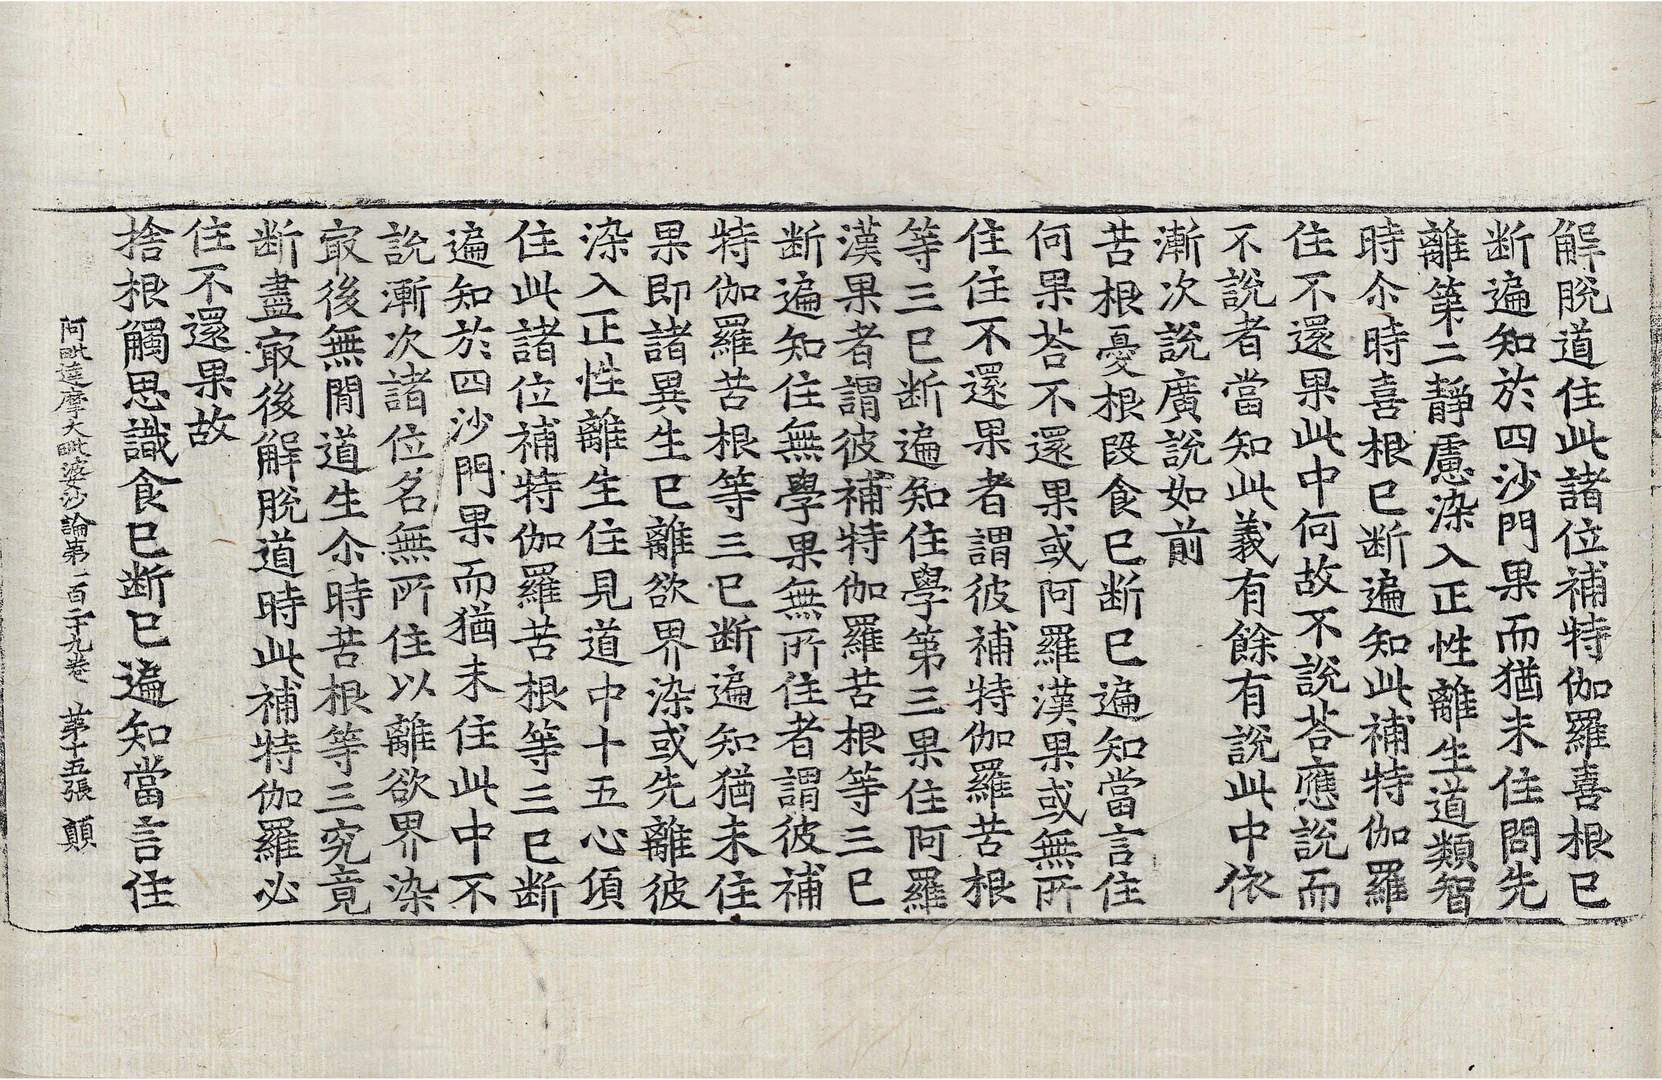 解脫道住此諸位補特伽羅喜根已
断遍知於四沙門果而猶未住問先
離第二靜慮染入正性離生道類智
時尒時喜根已断遍知此補特伽羅
住不還果此中何故不說荅應說而
不說者當知此義有餘有說此中依
漸次說廣說如前
苦根憂根段食已断已遍知當言住
何果荅不還果或阿羅漢果或無所
住住不還果者謂彼補特伽羅苦根
等三已断遍知住學第三果住阿羅
漢果者謂彼補特伽羅苦根等三已
断遍知住無學果無所住者謂彼補
特伽羅苦根等三已断遍知猶未住
果即諸異生已離欲界染或先離彼
染入正性離生住見道中十五心頃
住此諸位補特伽羅苦根等三已断
遍知於四沙門果而猶未住此中不
說漸次諸位名無所住以離欲界染
㝡後無閒道生尒時苦根等三究竟
断盡㝡後解脫道時此補特伽羅必
住不還果故
捨根觸思識食已断已遍知當言住
阿毗達摩大毗婆沙論第一百二十九卷　第十五張　顛